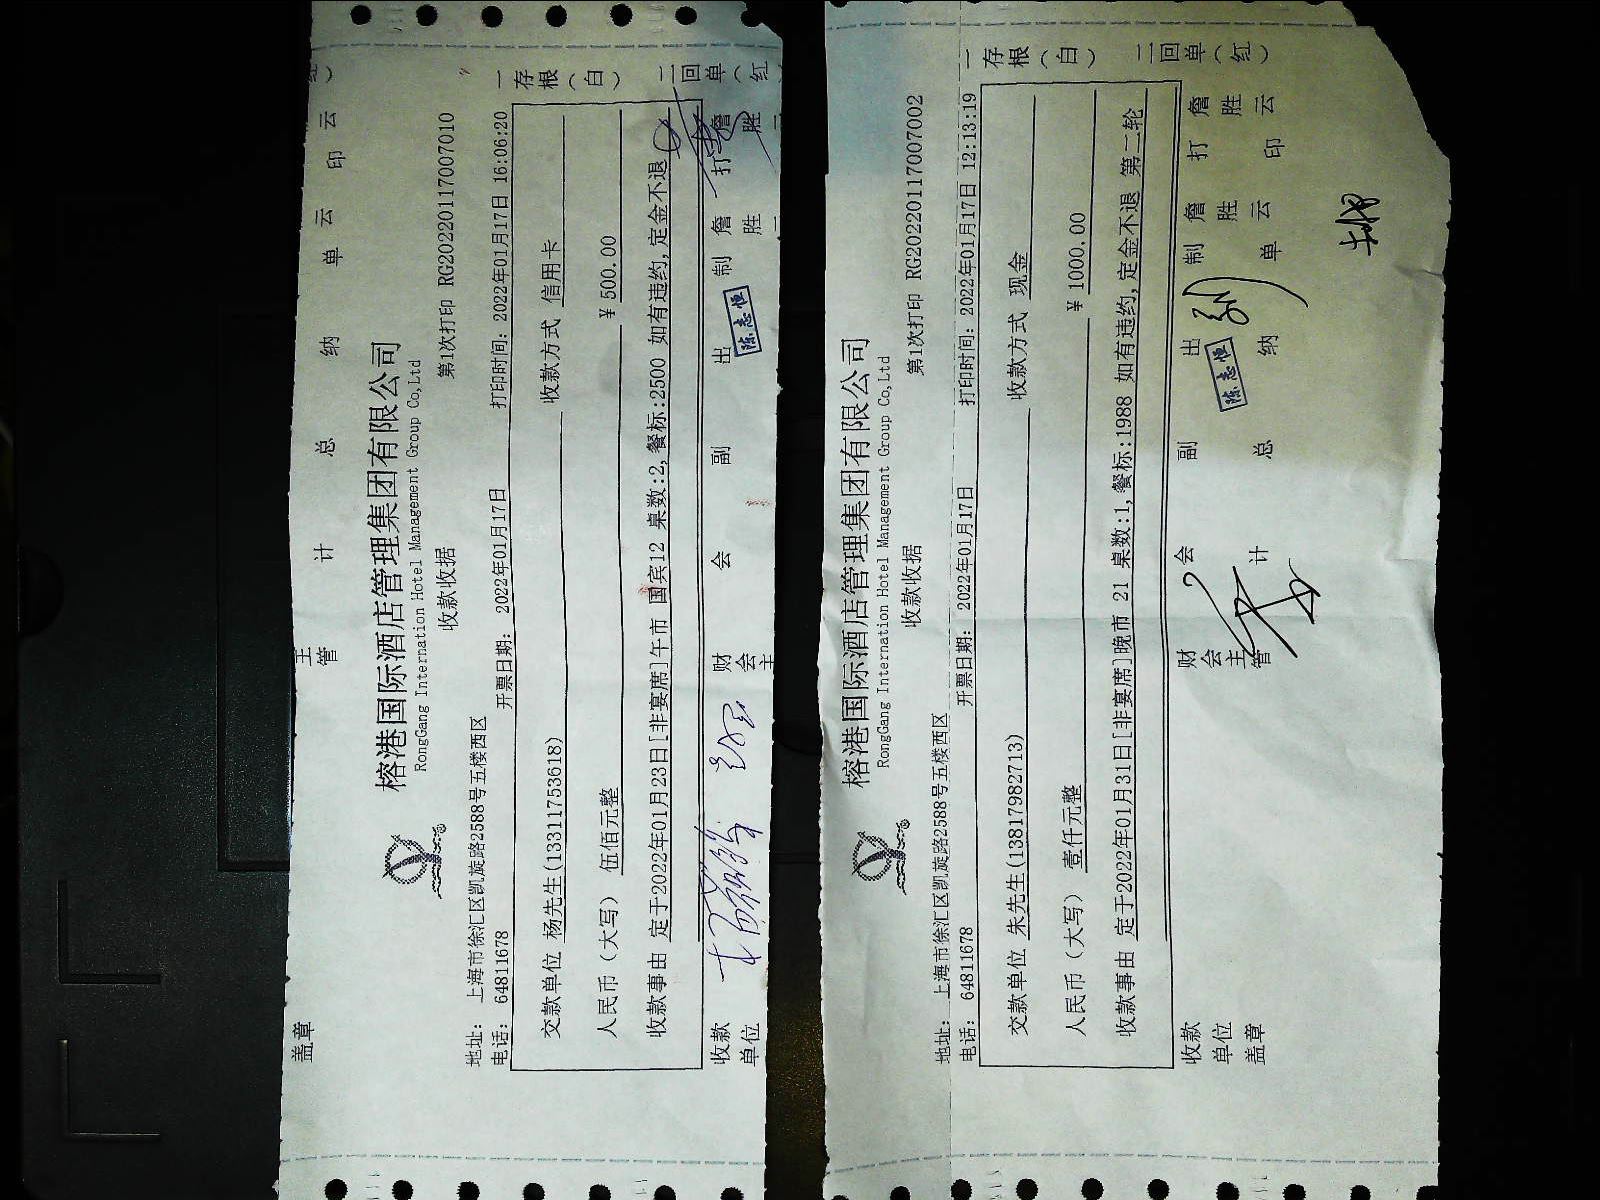 盖章 主管 计 总 纳 单云 印云
榕港国际酒店管理集团有限公司
RongGang Internation Hotel Management Group Co,Ltd
收款收据 第1次打印 RG20220117007010
地址: 上海市徐汇区凯旋路2588号五楼西区
电话: 64811678 开票日期: 2022年01月17日 打印时间: 2022年01月17日 16:06:20
一存根(白)
二回单(红
交款单位 杨先生(13311753618) 收款方式 信用卡
人民币(大写) 伍佰元整 ¥500.00
收款事由 定于2022年01月23日[非宴席]午市 国宾12 桌数:2,餐标:2500 如有违约,定金不退
收款单位 财会主 会 副 出 制 詹胜 打 詹胜
陈志恒
榕港国际酒店管理集团有限公司
RongGang Internation Hotel Management Group Co,Ltd
收款收据 第1次打印 RG20220117007002
地址: 上海市徐汇区凯旋路2588号五楼西区
电话: 64811678 开票日期: 2022年01月17日 打印时间: 2022年01月17日 12:13:19
一存根(白)
二回单(红)
交款单位 朱先生(13817982713) 收款方式 现金
人民币(大写) 壹仟元整 ¥1000.00
收款事由 定于2022年01月31日[非宴席]晚市 21 桌数:1,餐标:1988 如有违约,定金不退 第二轮
收款单位盖章 财会主管 会计 副总 出纳 制单 詹胜云 打印 詹胜云
陈志恒